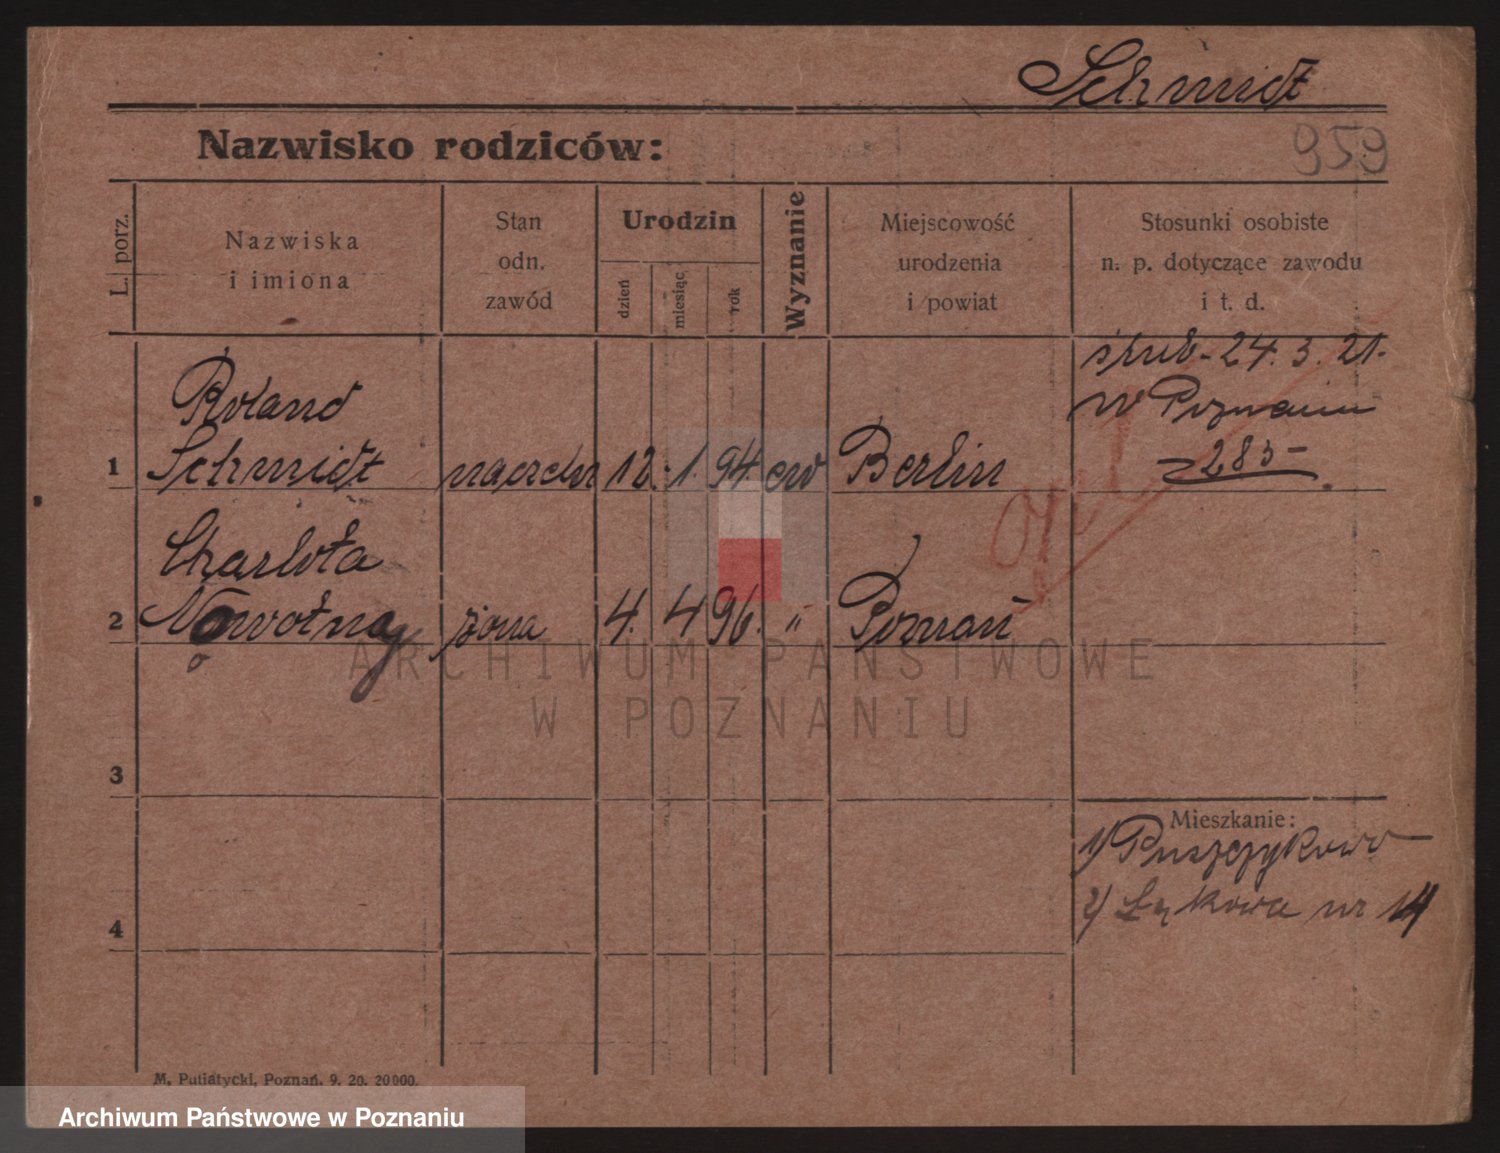 Schmidt
Nazwisko rodziców:
959
L. porz.
Nazwiska
i imiona
Stan
odn.
zawód
Urodzin
dzień
miesiąc
rok
Wyznanie
Miejscowość
urodzenia
i powiat
Stosunki osobiste
n. p. dotyczące zawodu
i t. d.
ślub - 24. 3. 21.
w Poznaniu
283-
Roland
1 Schmidt 12. 1. 94. ew Berlin
Charlota
2 Nowotna żona 4. 4 96. " Poznań
3
Mieszkanie:
1) Puszczykowo
2) Łąkowa nr 14
4
M. Putiatycki, Poznań. 9. 20. 20000.
ARCHIWUM PAŃSTWOWE
W POZNANIU
Archiwum Państwowe w Poznaniu